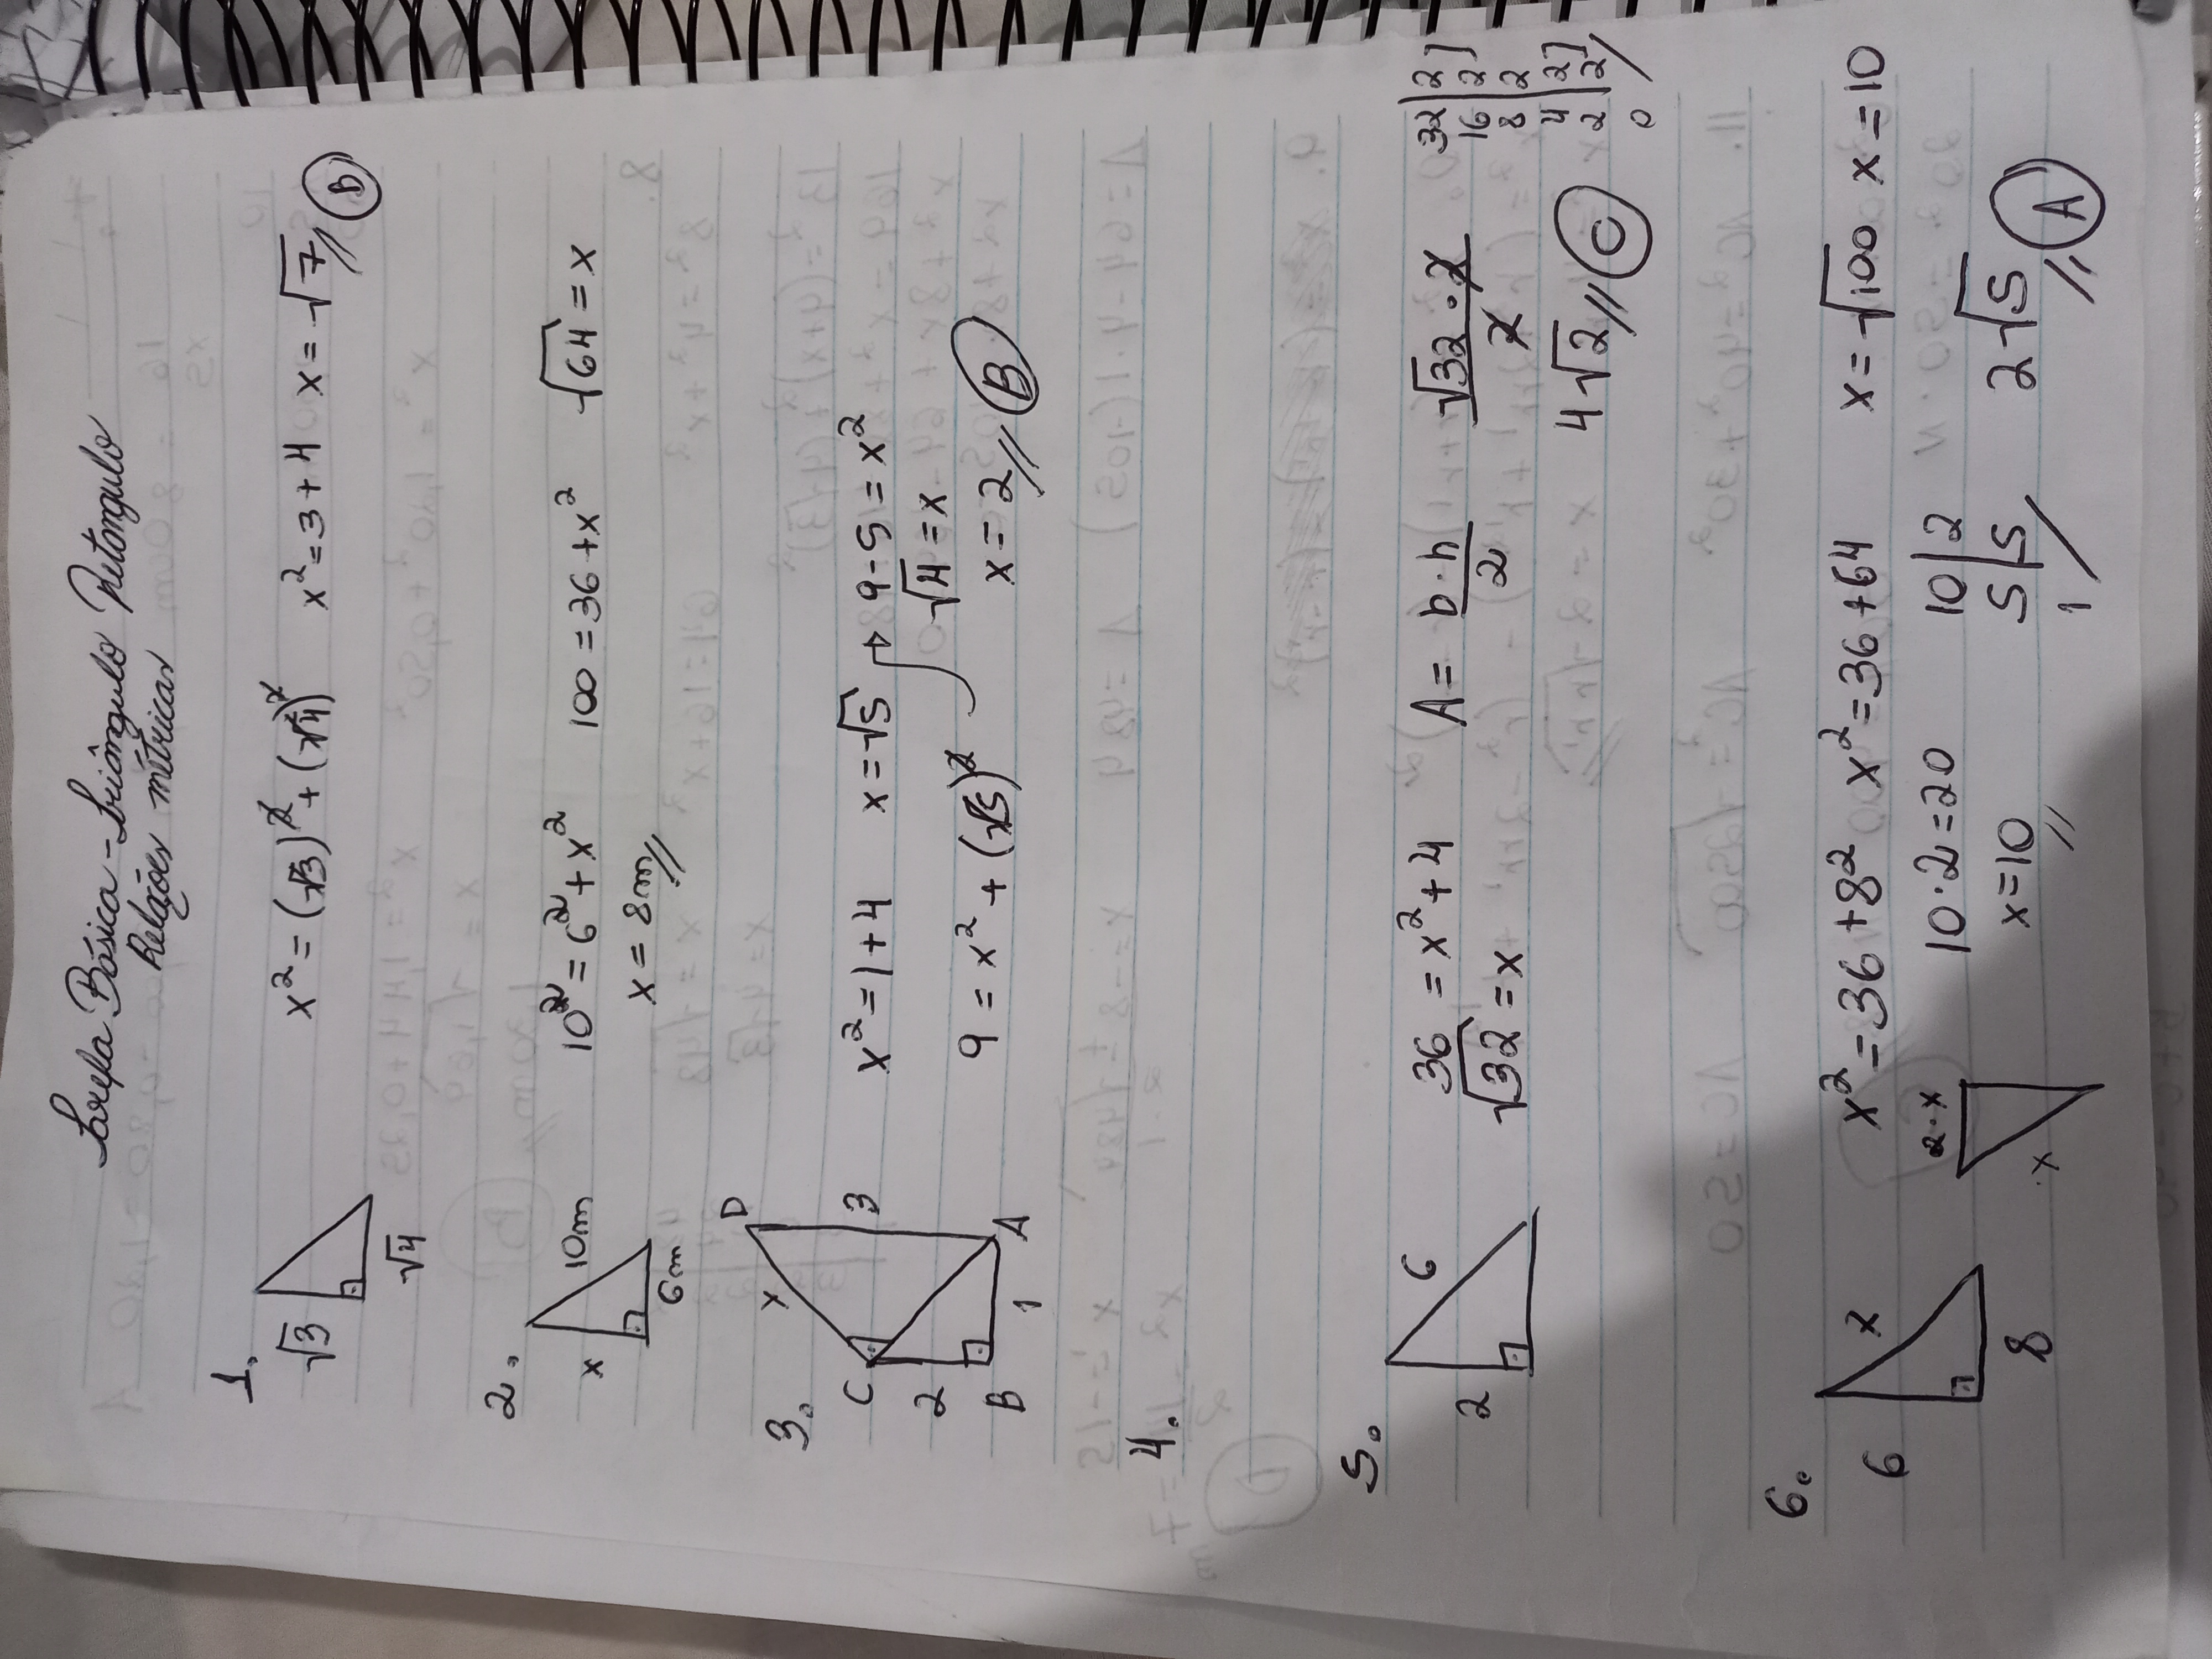 Tarefa Básica - Triângulo Retangulo
Relações métricas
1.
√3
√4
x² = (√3)² + (√4)² x² = 3 + 4 x = √7 // B
2.
x 10m
6m
10² = 6² + x² 100 = 36 + x² √64 = x
x = 8m //
3.
D
x
C 3
2
B 1 A
x² = 1 + 4 x = √5 → 9 - 5 = x²
√4 = x
9 = x² + (√5)² x = 2 // B
4.
5.
2 6
36 = x² + 4 A = b · h / 2 √32 · 2 / 2
√32 = x
4√2 // C
32 | 2
16 | 2
8 | 2
4 | 2
2 | 2
0
6.
6 x
8
x² = 36 + 8² x² = 36 + 64 x = √100 x = 10
2 · x
x
10 · 2 = 20
x = 10 //
10 | 2
5 | 5
1
2√5 // A